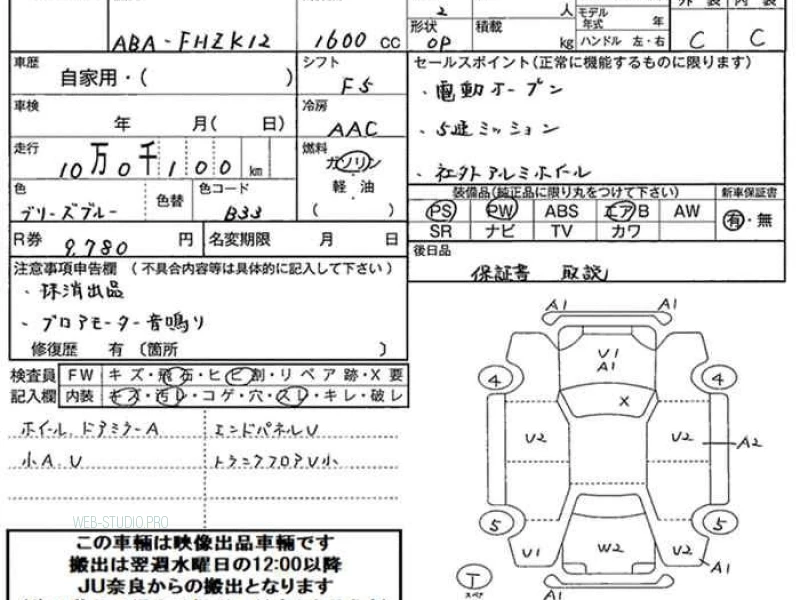 2 人 モデル年式 年 外装 内装
ABA-FHZK12 1600 cc 形状 OP 積載 kg ハンドル 左・右 C C
車歴 自家用・( ) シフト F5
セールスポイント(正常に機能するものに限ります)
・電動オープン
車検 年 月( 日) 冷房 AAC
・5速ミッション
走行 10万0千100km 燃料 ガソリン
軽・油
( )
・社外アルミホイール
色 ブリーズブルー 色替 色コード B33
装備品(純正品に限り丸をつけて下さい) 新車保証書
PS PW ABS エアB AW 有・無
SR ナビ TV カワ
R券 9,780 円 名変期限 月 日
後日品
保証書 取説
注意事項申告欄(不具合内容等は具体的に記入して下さい)
・抹消出品
・ブロアモーター音鳴り
修復歴 有〔箇所 〕
検査員 FW キズ・飛石・ヒビ割・リペア跡・X要
記入欄 内装 キズ・汚レ・コゲ・穴・スレ・キレ・破レ
ホイール、ドアミラーA エンドパネルU
小A.U トランクフロアU小
WEB-STUDIO.PRO
この車輛は映像出品車輛です
搬出は翌週水曜日の12:00以降
JU奈良からの搬出となります
A1 A1
U1
A1
4 4
X
U2 U2 A2
5 5
U1 W2 U2 A1
T
スペア
A1